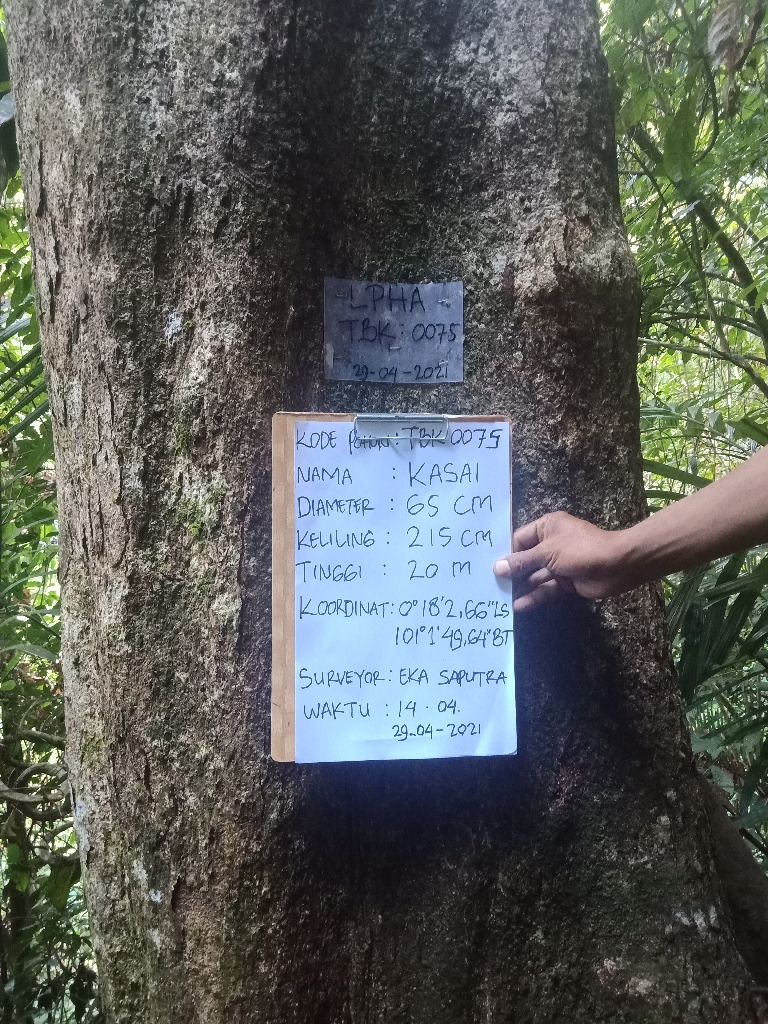 LPHA
TBK : 0075
29-04-2021
KODE POHON : TBK 0075
NAMA : KASAI
DIAMETER : 65 CM
KELILING : 215 CM
TINGGI : 20 M
KOORDINAT : 0°18'2,66"LS
101°1'49,64"BT
SURVEYOR : EKA SAPUTRA
WAKTU : 14.04.
29-04-2021